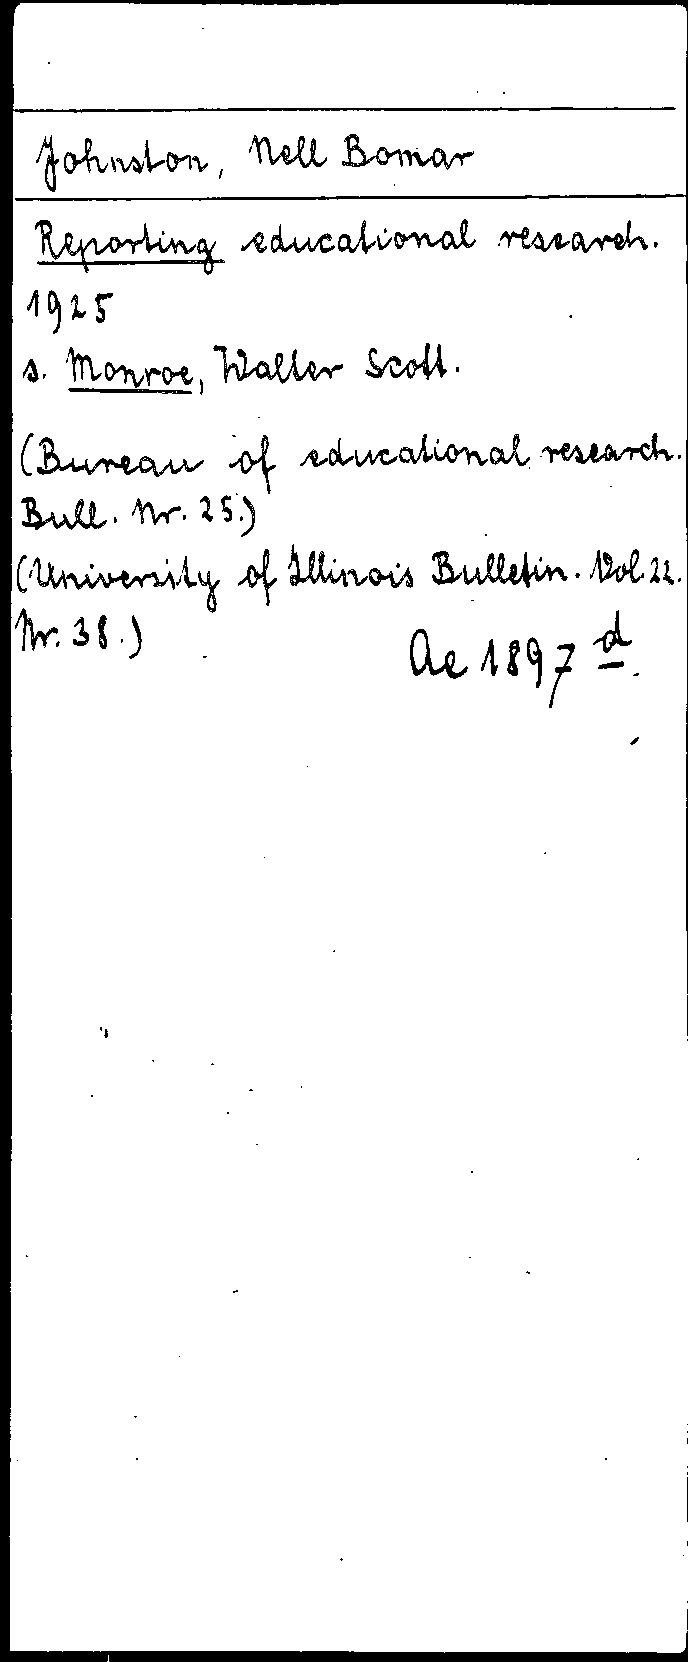 Johnston, Nell Bomar
Reporting educational research.
1925
s. Monroe, Walter Scott.
(Bureau of educational research.
Bull. Nr. 25.)
(University of Illinois Bulletin. Vol. 22.
Nr. 38.)
Ae 1897 d